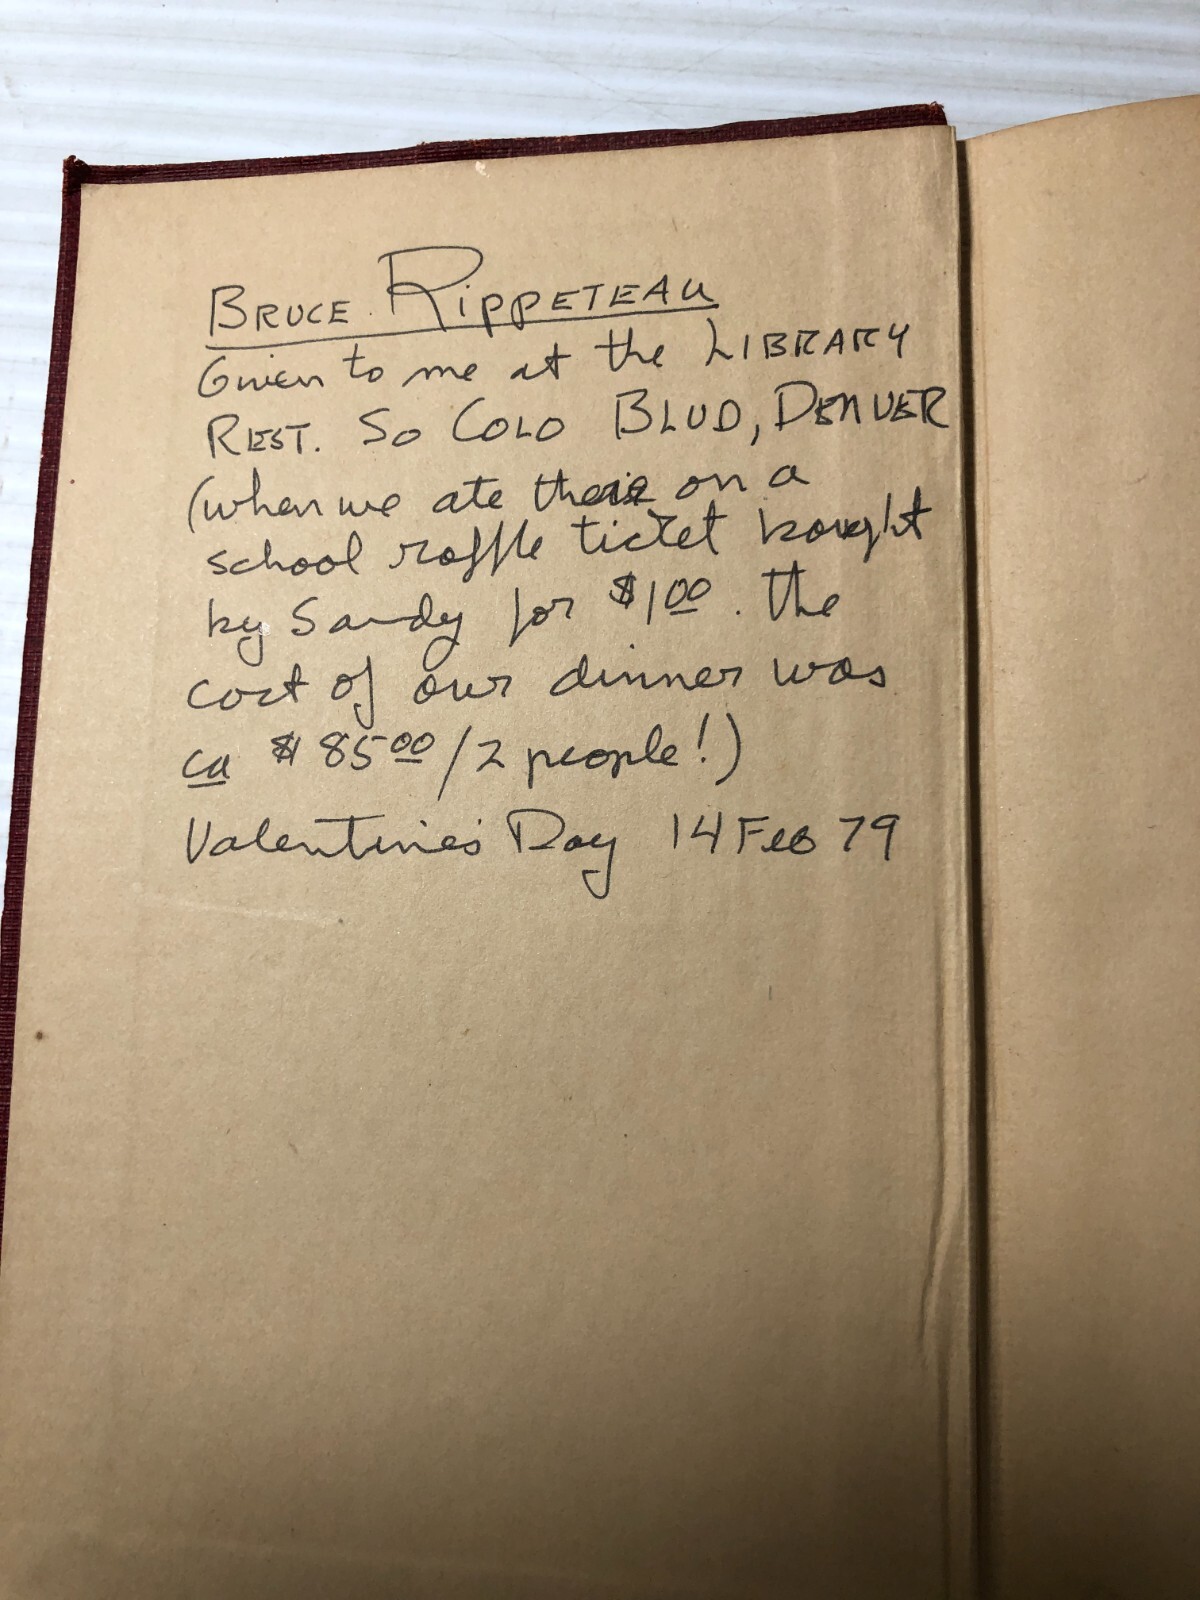 BRUCE RIPPETEAU
Given to me at the LIBRARY
REST. SO COLO BLVD, DENVER
(when we ate there on a
school raffle ticket bought
by Sandy for $1.00. The
cost of our dinner was
ca $85.00/2 people!)
Valentine's Day 14 FEB 79